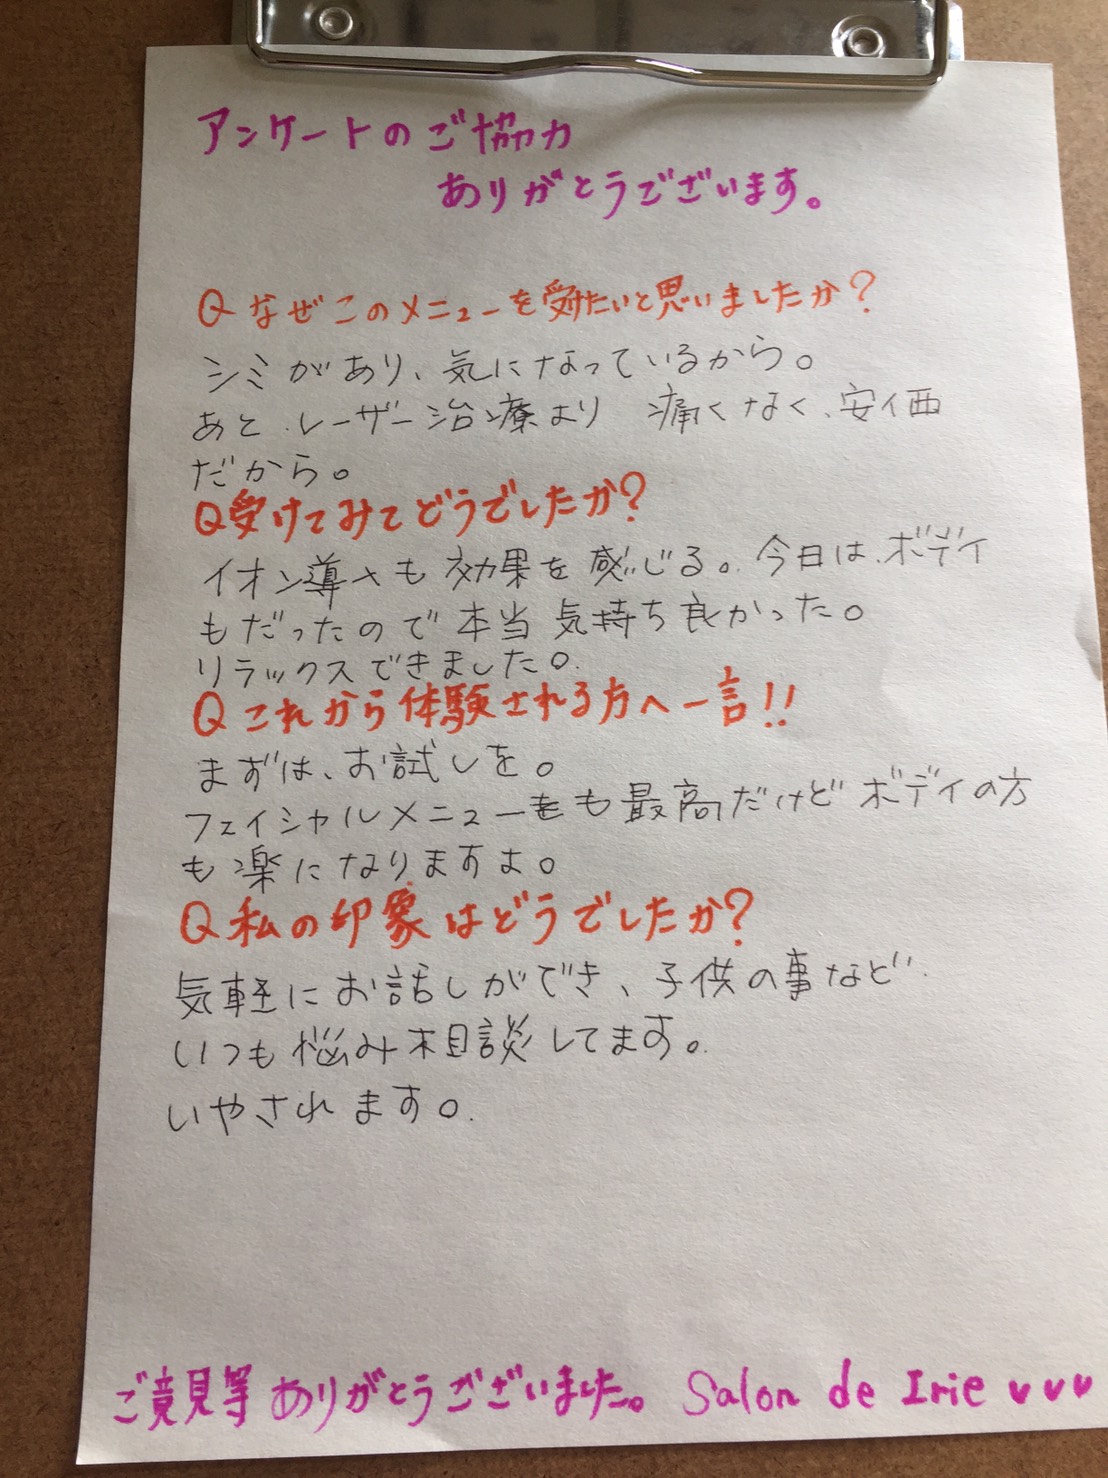 アンケートのご協力
ありがとうございます。
Q なぜこのメニューを受けたいと思いましたか?
シミがあり、気になっているから。
あと、レーザー治療より 痛くなく、安価
だから。
Q 受けてみてどうでしたか?
イオン導入も効果を感じる。今日は、ボディ
もだったので本当気持ち良かった。
リラックスできました。
Q これから体験される方へ一言!!
まずは、お試しを。
フェイシャルメニューも最高だけどボディの方
も楽になりますよ。
Q 私の印象はどうでしたか?
気軽にお話しができ、子供の事など
いつも悩み相談してます。
いやされます。
ご意見等ありがとうございました。 Salon de Irie ♥♥♥